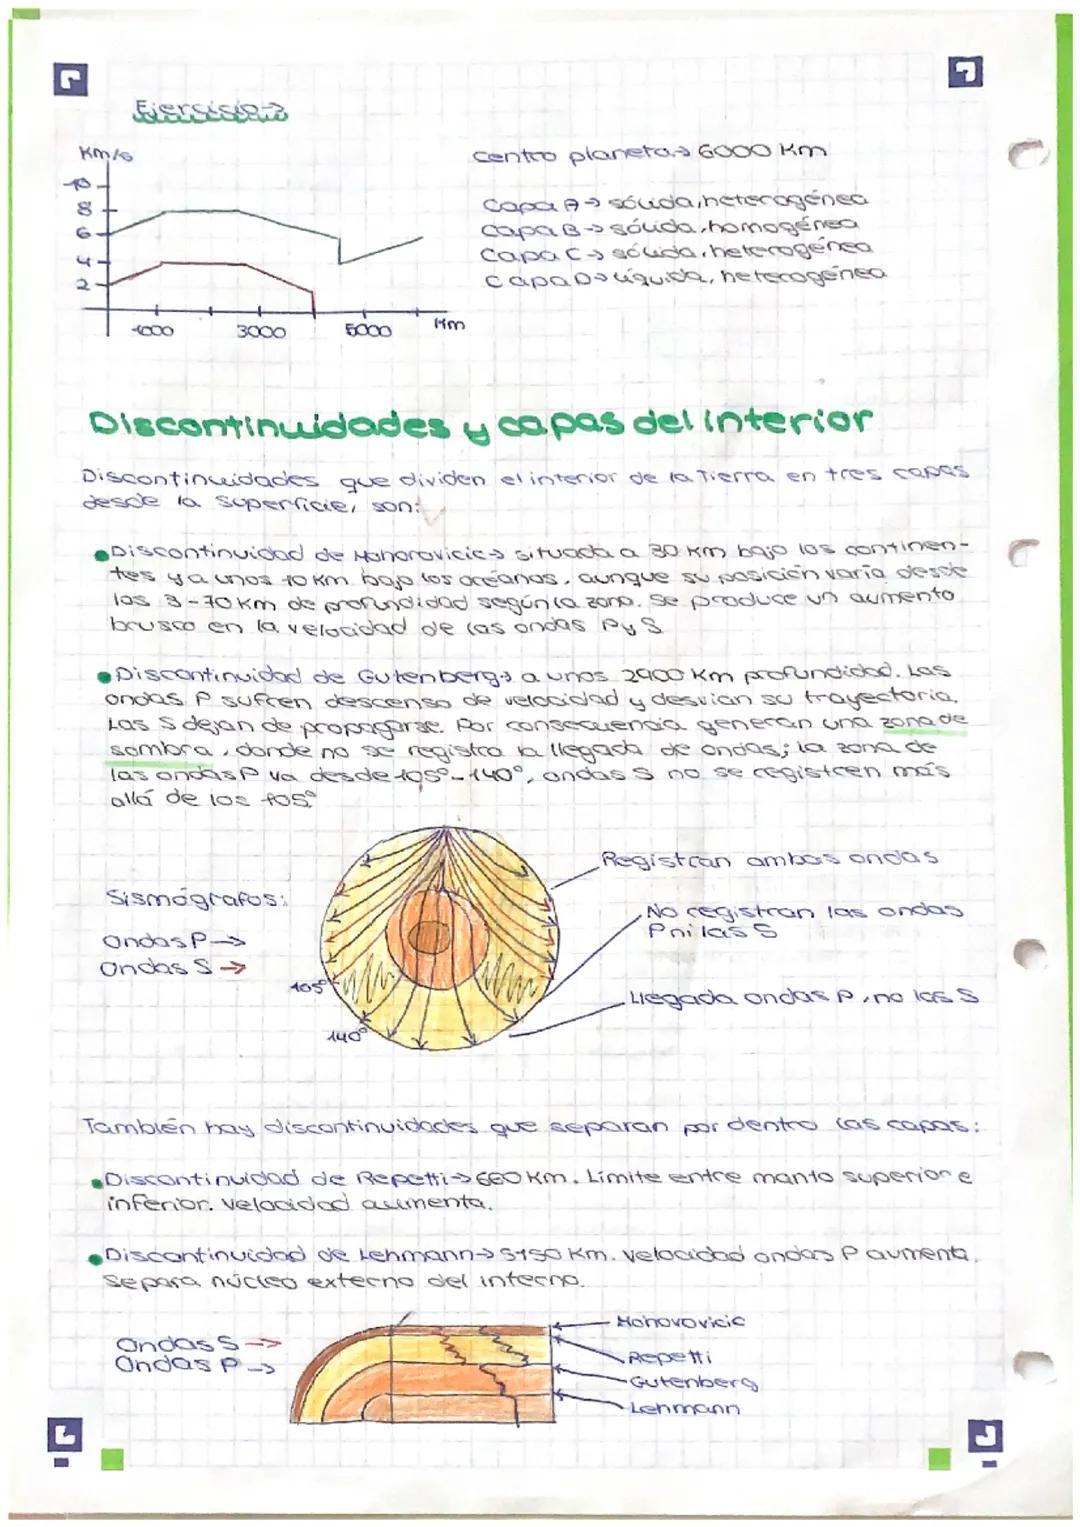 Ejercicio→
Km/s
10
8
6
4
2
1000
3000
5000
Km
Centro planeta→ 6000 Km
Capa A→ sólida, heterogénea
Capa B→ sólida, homogénea
Capa C→ sólida, heterogénea
Capa D→ líquida, heterogénea
Discontinuidades y capas del interior
Discontinuidades que dividen el interior de la Tierra en tres capas
desde la superficie, son:
Discontinuidad de Mohorovicic→ situada a 30 Km bajo los continen-
tes y a unos 10 Km bajo los océanos, aunque su posición varía desde
los 3-70 Km de profundidad según la zona. Se produce un aumento
brusco en la velocidad de las ondas P y S
Discontinuidad de Gutenberg→ a unos 2900 Km profundidad. Las
ondas P sufren descenso de velocidad y desvían su trayectoria.
Las S dejan de propagarse. Por consecuencia generan una zona de
sombra, donde no se registra la llegada de ondas; la zona de
las ondas P va desde 105º-140º, ondas S no se registren más
allá de los 105º
Sismógrafos:
Ondas P→
Ondas S→
105º
140º
Registran ambas ondas
No registran las ondas
P ni las S
Llegada ondas P, no las S
También hay discontinuidades que separan por dentro las capas:
Discontinuidad de Repetti→ 660 Km. Límite entre manto superior e
inferior. Velocidad aumenta.
Discontinuidad de Lehmann→ 5150 Km. Velocidad ondas P aumenta.
Separa núcleo externo del interno.
Ondas S→
Ondas P→
Mohorovicic
Repetti
Gutenberg
Lehmann